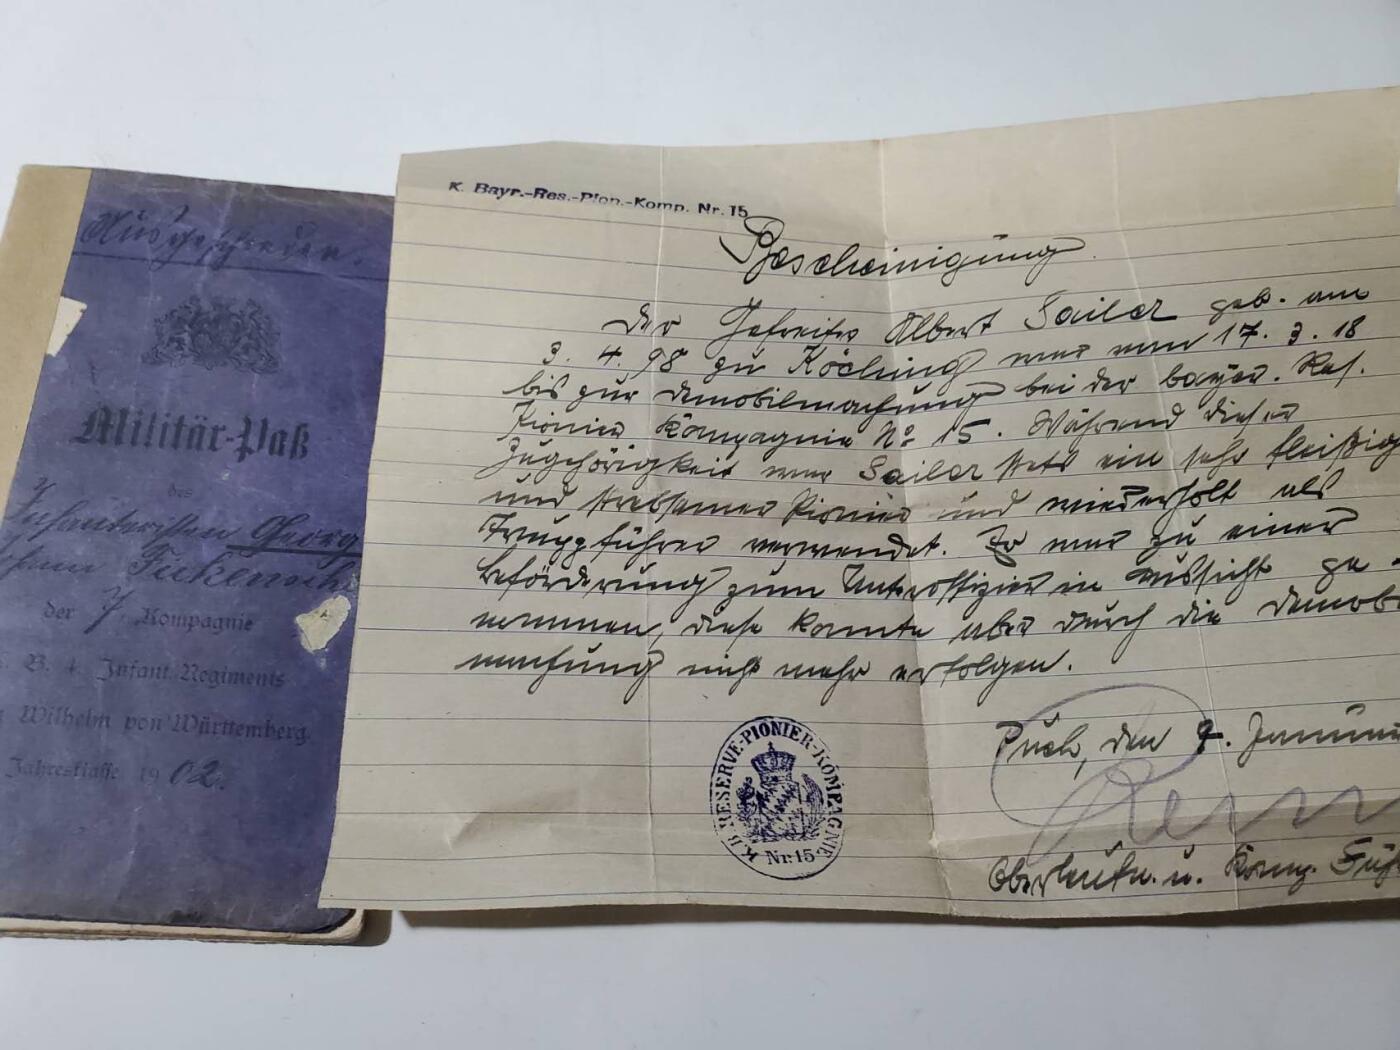 Ausgeschieden
Militär-Paß
des
Infanteristen Georg
der 7. Kompagnie
B. 4. Infant. Regiments
Wilhelm von Württemberg.
Jahresklasse 1902.
K. Bayr.-Res.-Pion.-Komp. Nr. 15
Bescheinigung
Der Gefreite Albert Sailer geb. am
3. 4. 98 zu Kösching war vom 17. 3. 18
bis zur Demobilmachung bei der bayer. Res.
Pionier Kompagnie No 15. Während dieser
Zugehörigkeit war Sailer stets ein sehr fleißig
und strebsamer Pionier und wiederholt als
Truppführer verwendet. Er war zu einer
Beförderung zum Unteroffizier in Aussicht ge-
nommen, diese konnte aber durch die Demobil
machung nicht mehr erfolgen.
Puch, den 9. Januar
Oberleutn. u. Komp. Füh
K.B. RESERVE-PIONIER-KOMPAGNIE
Nr. 15